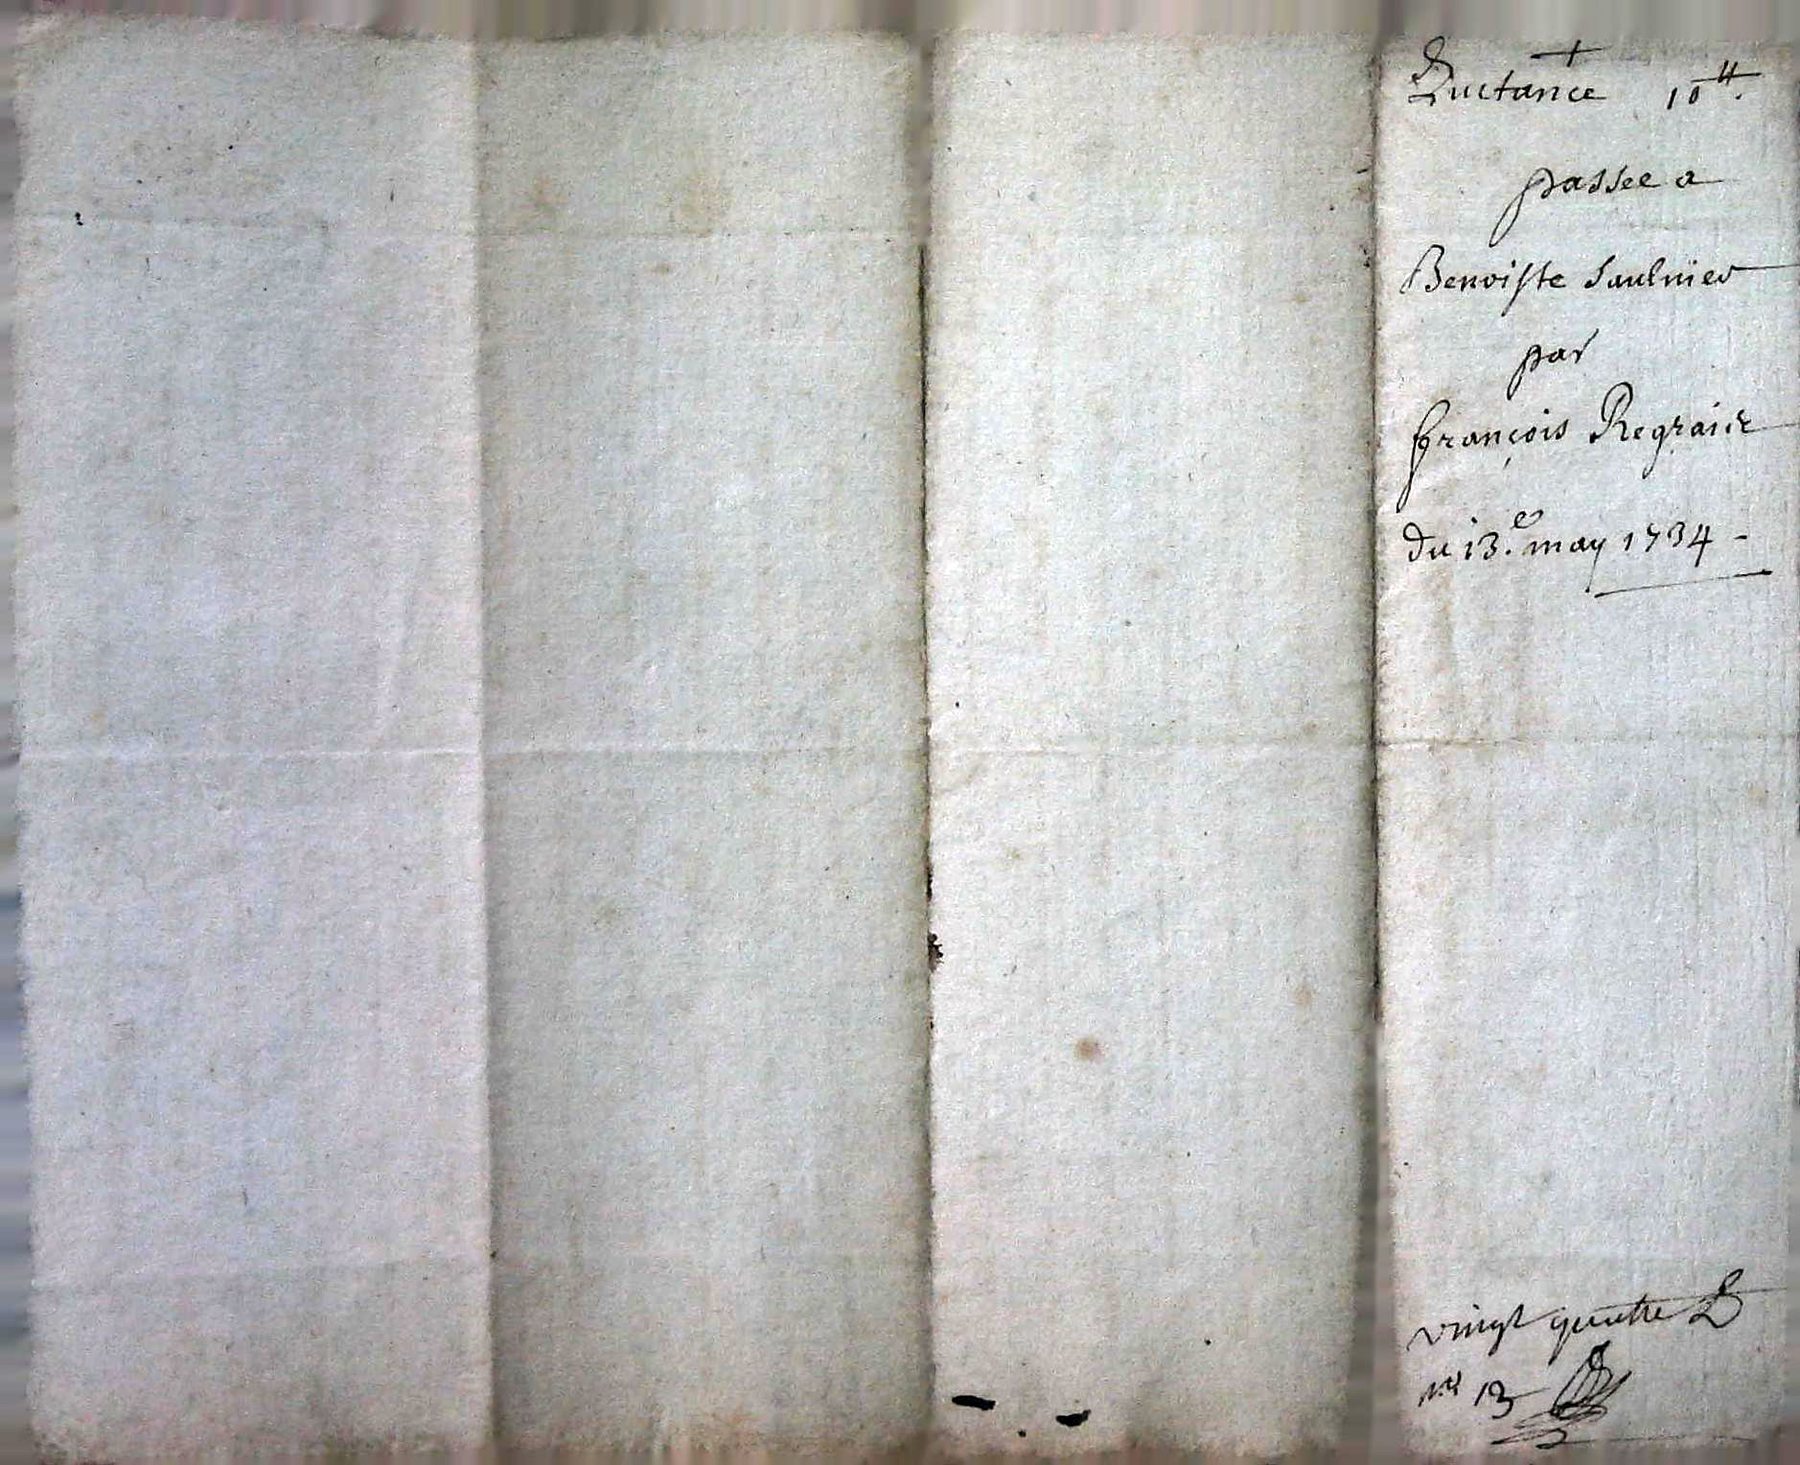 Quictance 10^tt.
passee a
Benoiste Saulnier
par
françois Regraict
du 13.^e may 1734 -
vingt quattre
13